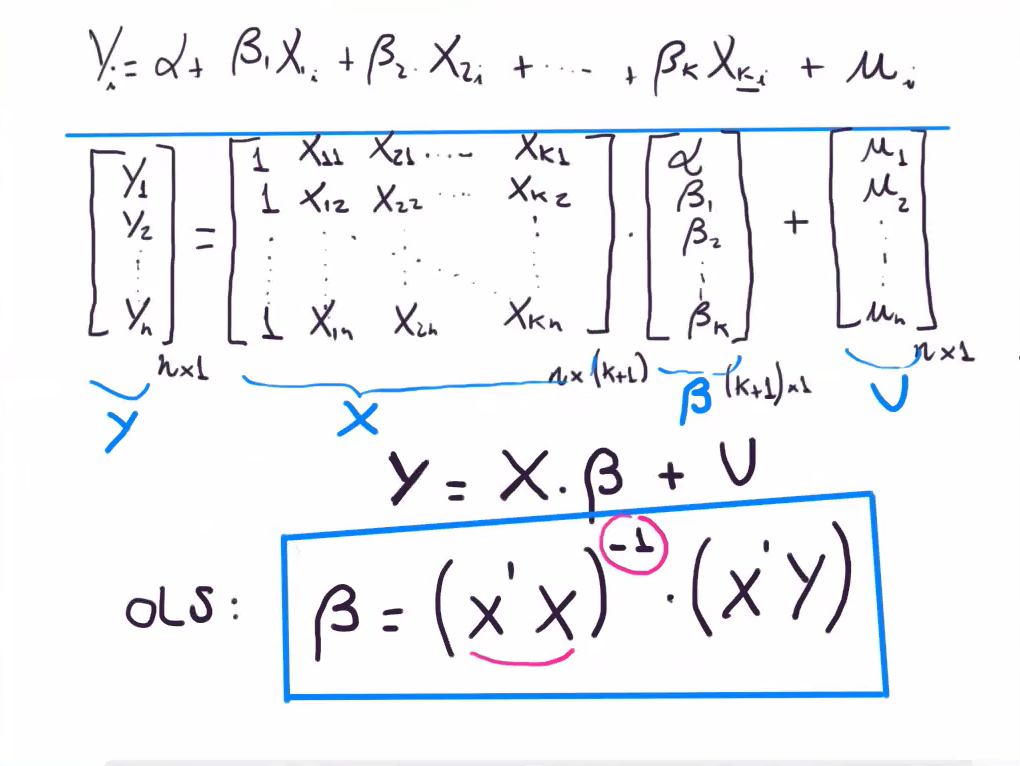 Yᵢ = α + β₁X₁ᵢ + β₂. X₂ᵢ + ····· + βₖ Xₖᵢ + μᵢ
[Y₁ Y₂ ⋮ Yₙ] n×1 = [1 X₁₁ X₂₁ ····· Xₖ₁ ; 1 X₁₂ X₂₂ ···· Xₖ₂ ; ⋮ ⋮ ⋮ ⋱ ⋮ ; 1 X₁ₙ X₂ₙ Xₖₙ] n×(k+1) · [α β₁ β₂ ⋮ βₖ] (k+1)×1 + [μ₁ μ₂ ⋮ μₙ] n×1
Y X β U
Y = X . β + U
OLS: β = (X'X)⁻¹ . (X'Y)